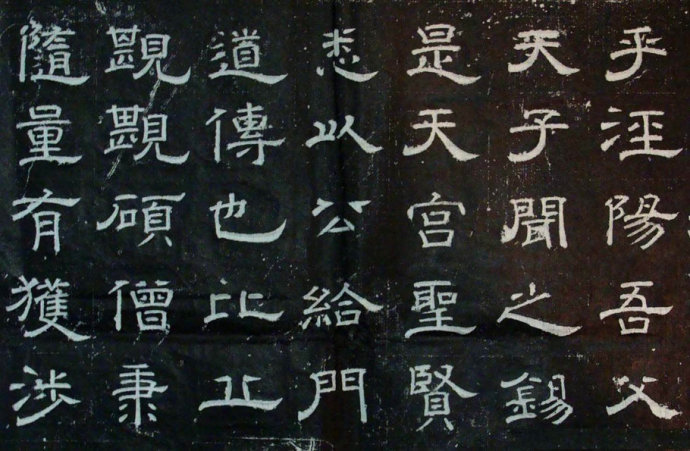 乎涇陽吾父
天子聞之錫
是天宮聖賢
悉以公給門
道傳也比丘
碩僧秉
隨量有獲涉